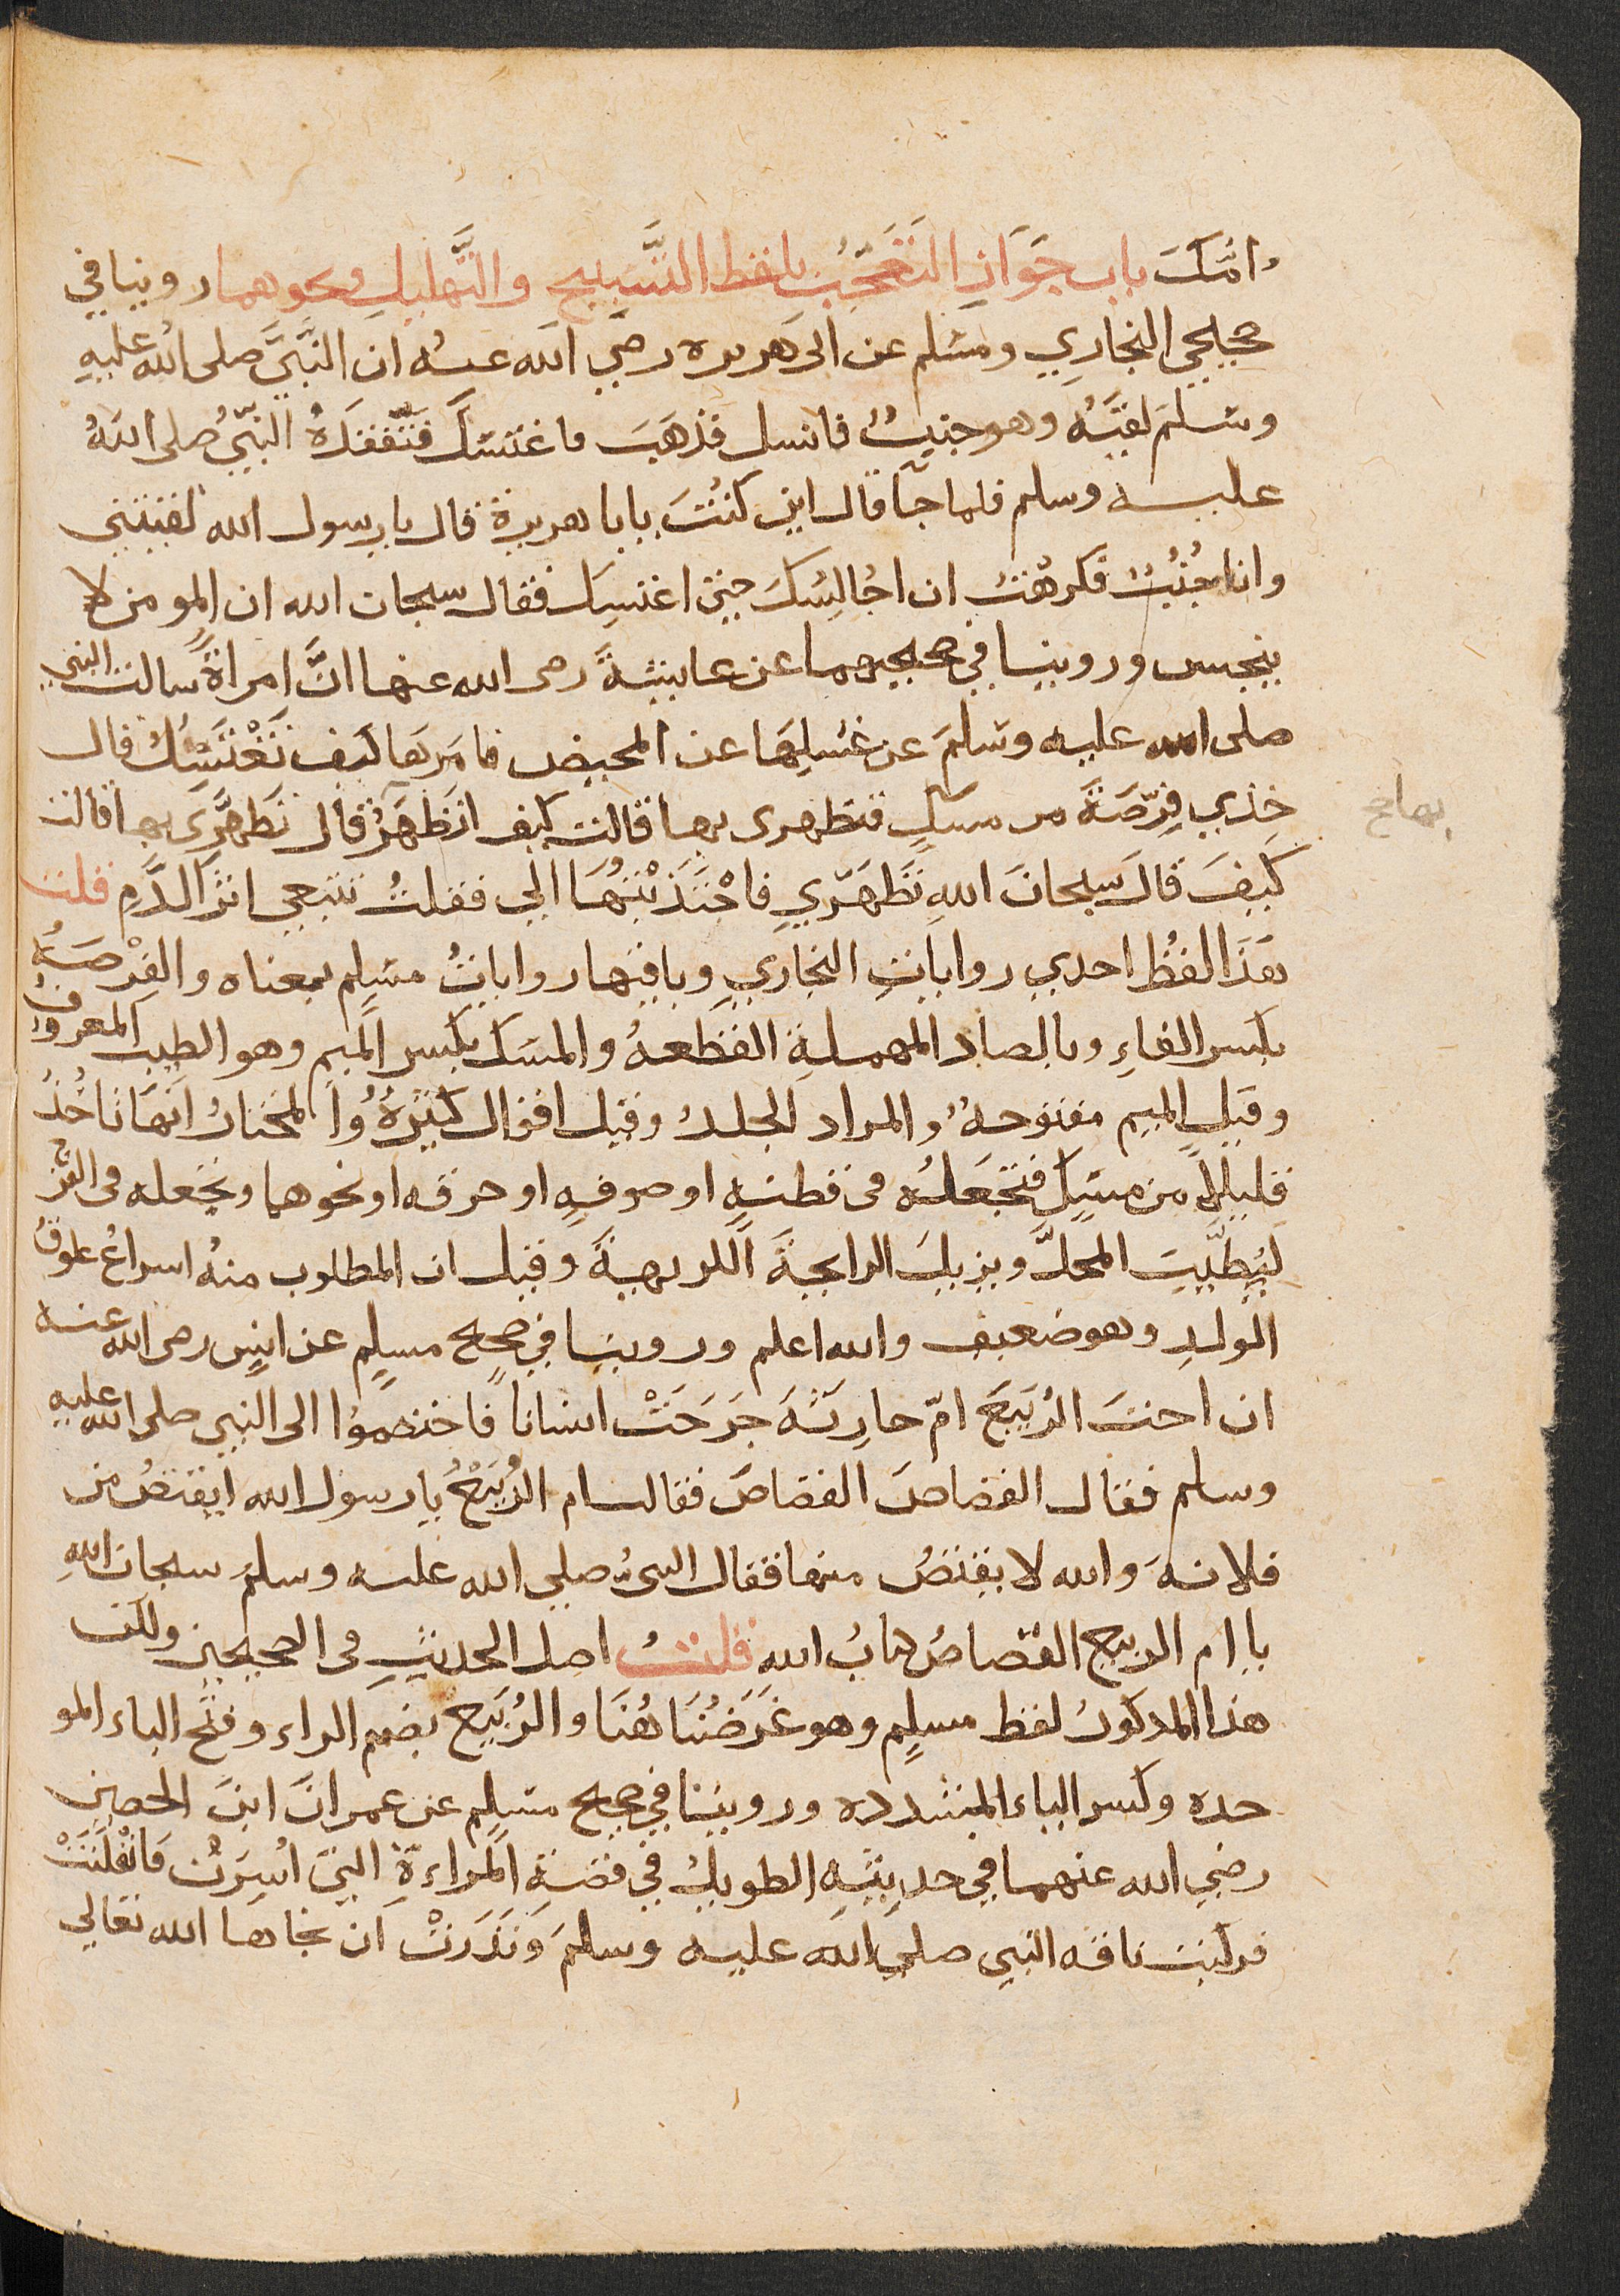 امّك باب جَوَازِ التَعَجّبُ بلفظ التَّسَبيح والتَّهليلِ ونحوهما روينا في
صحيحي البخاري ومسْلم عن ابى هريره رضَي الله عنه ان النَّبَيَّ صلى الله عليهِ
وسَلمَ لقيَهُ وهو جنبٌ فانسل فذهَبَ فاغتسَل فَتَّفقدَهُ النّبيُّ صلى اللهُ
عليه وسلم فلما جآ قال اين كنُتَ يابا هريرة قال يا رسول الله لقيتني
وانا جُنُبٌ فكرهْت ان اجُالِسُكَ حتىَ اغتسِل فقال سبحان الله ان المومن لا
ينجس وروينا في صحيحيهما عن عايشةَ رصى الله عنها انَّ امراةً سالت النبي
صلى الله عليه وسَلمَ عن غسْلِهَا عن المحيض فامَرهَا كيف تَغْتَسَلُ قال
خذي فِرّصَةَ من مسكٍ فتطهرى بها قالت كيف اتَطَهَرُ قال تَطَهَّرَى بها قالت
بها صح
كَيفَ قالَ سبحانَ اللهِ تَطَهَرّي فاجْتَذَبْتُهَا الي فقلتُ تتبعي اثرَ الدَّمِ قلت
هَذَا لفُظ احدي رواياتِ البخاري وباقيها رواياتُ مسْلِم بمعناه والفِرْصَةُ
بكسر الفاءِ وبالصاد المهملةِ القطعهُ والمسَك بكسر الميم وهو الطيب المعروفُ
وقيل الميم مفتوحهُ والمراد الجلدُ وقيل اقوال كثيرةُ والمختارُ انهَا تاخُذُ
قليلاً من مسَكِ فتجَعَلُه فى قطنهٍ او صوفهٍ او خرقه او نحوهما وتجعله فى الفرج
لتُطَّيبَ المحلَّ ويزيلَ الرايحةَ الكريهةَ وقيل ان المطلوب منهُ اسراعُ علوقُ
الولدِ وهو ضعيف والله اعلم وروينا في صحيح مسلمٍ عن انسٍ رصى الله عنه
ان اخت الرُبَيعَ امّ حارِثَهَ جَرَحَتْ انسانا فاختصمُوا الى النبي صلى الله عليه
وسلم فقال القصاصَ القصَاصَ فقالت ام الرُبَيعْ يا رسول الله ايقتصُ من
فلانهَ والله لا يقتصُ منها فقال النبىُ صلى الله عليه وسلمَ سبحان اللهِ
يا ام الربيع القصاص كتابُ الله قلتُ اصل الحديثِ فى الصحيحين ولكن
هذا المذكورُ لفظ مسلمٍ وهو غَرَضُنَا هُنَا والرُبَيع بضم الراء وفتح الباء المو
حده وكسر الياء المشدده وروينا في صحيح مسْلِم عن عمرانَ ابنَ الحصين
رضي الله عنهما في حديثهِ الطويل في قصةِ المراءةِ التىَ اسُِرَتُ فانْفلَتَتْ
فركبت ناقه النبي صلى الله عليه وسلمَ وَنَذَرَتْ ان نجاها الله تعالي